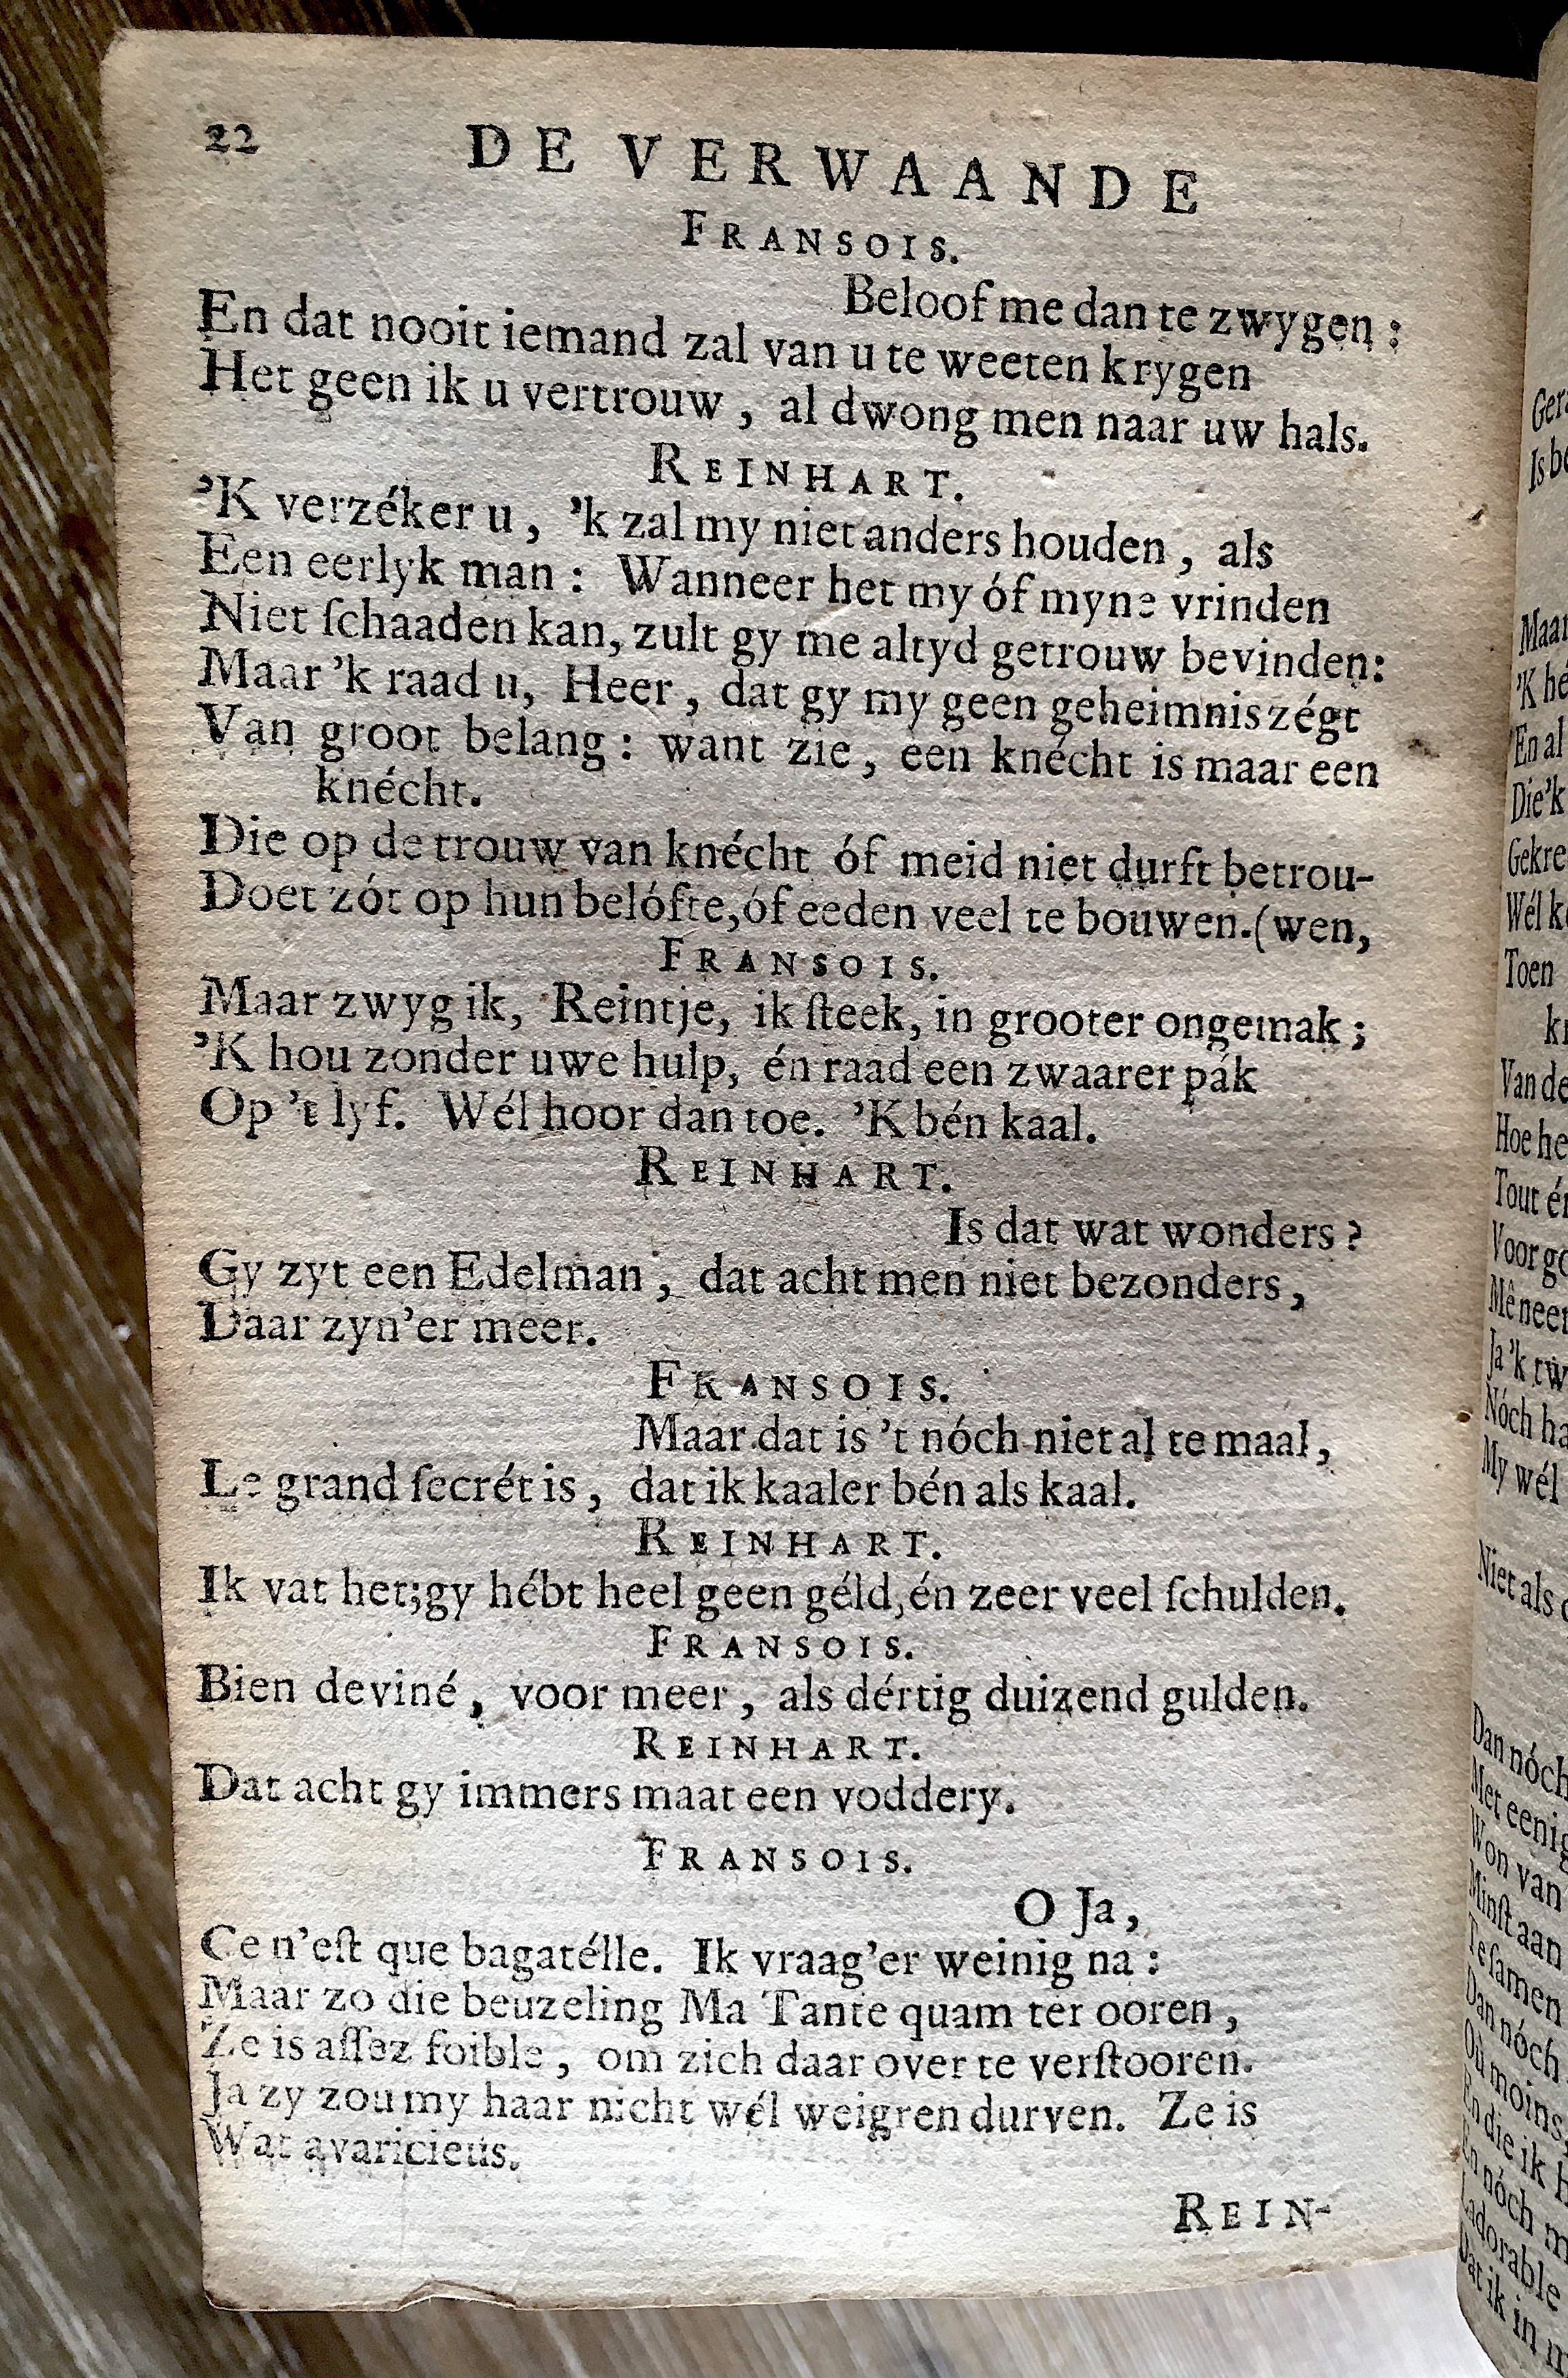 22 DE VERWAANDE
FRANSOIS.
Beloof me dan te zwygen:
En dat nooit iemand zal van u te weeten krygen
Het geen ik u vertrouw, al dwong men naar uw hals.
REINHART.
’K verzéker u, ’k zal my niet anders houden, als
Een eerlyk man: Wanneer het my óf myne vrinden
Niet ſchaaden kan, zult gy me altyd getrouw bevinden:
Maar ’k raad u, Heer, dat gy my geen geheimnis zégt
Van groot belang: want zie, een knécht is maar een
knécht.
Die op de trouw van knécht óf meid niet durft betrou-
Doet zót op hun belófte, óf eeden veel te bouwen.(wen,
FRANSOIS.
Maar zwyg ik, Reintje, ik ſteek, in grooter ongemak;
’K hou zonder uwe hulp, én raad een zwaarer pak
Op ’t lyf. Wél hoor dan toe. ’K bén kaal.
REINHART.
Is dat wat wonders?
Gy zyt een Edelman, dat acht men niet bezonders,
Daar zyn’er meer.
FRANSOIS.
Maar dat is ’t nóch niet al te maal,
Le grand ſecrét is, dat ik kaaler bén als kaal.
REINHART.
Ik vat het; gy hébt heel geen géld, én zeer veel ſchulden.
FRANSOIS.
Bien deviné, voor meer, als dértig duizend gulden.
REINHART.
Dat acht gy immers maat een voddery.
FRANSOIS.
O Ja,
Ce n’eſt que bagatélle. Ik vraag’er weinig na:
Maar zo die beuzeling Ma Tante quam ter ooren,
Ze is aſſez foible, om zich daar over te verſtooren.
Ja zy zou my haar nicht wél weigren durven. Ze is
Wat avaricieus.
REIN-
Is
Maar
’K he
En al
Die’k
Toen
Van de
Hoe he
Tout
Voor
Mê neer
Ja ’k
Nóch
My wél
Niet als
Dan nóch
Met eenig
Won van
Minſt aan
Dan nóch
Où moins
En die ik
En nóch
Dat ik in